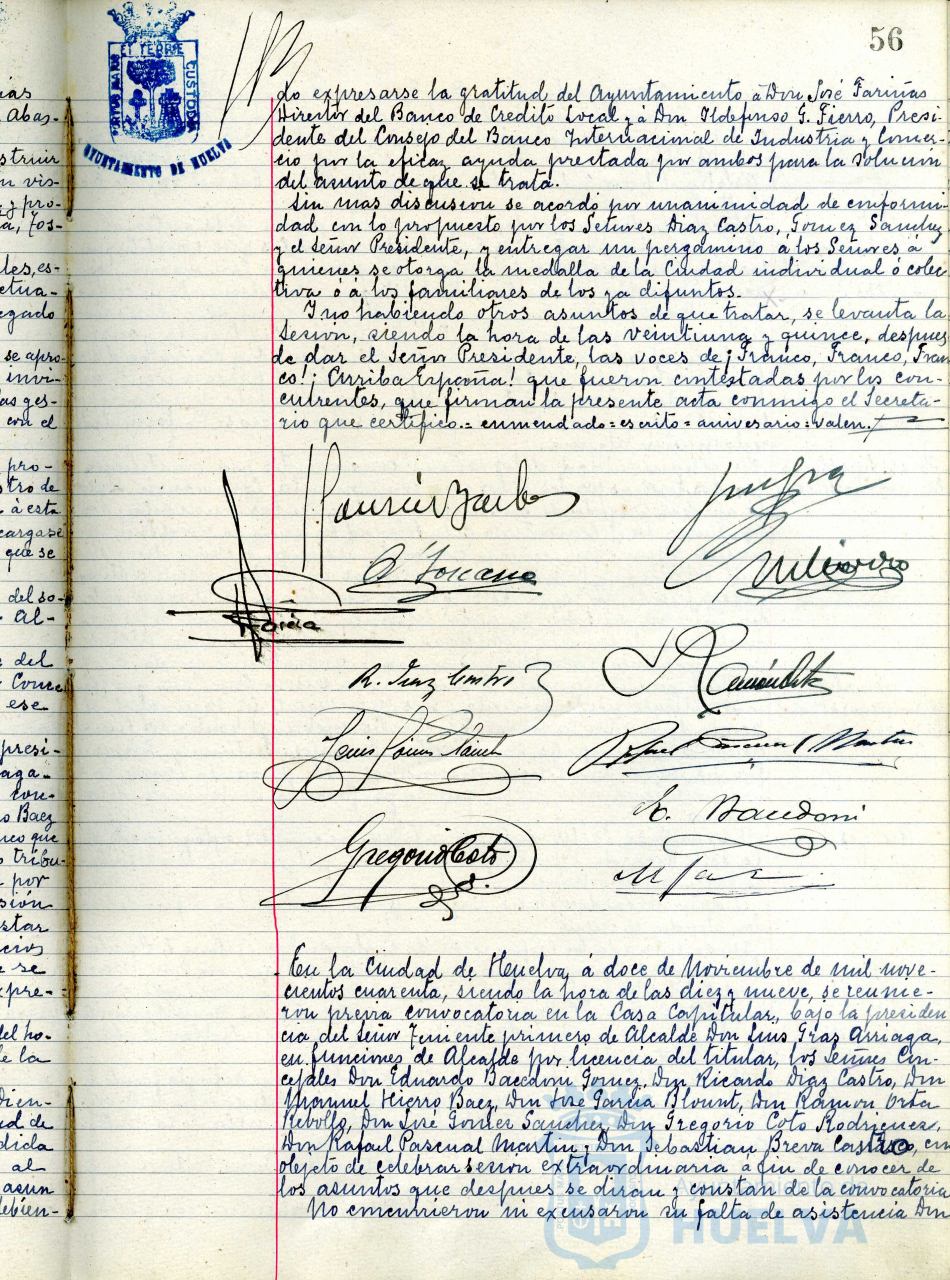 56
ET TERRE
PORTUS MARIS
CUSTODIA
AYUNTAMIENTO DE HUELVA
do expresarse la gratitud del Ayuntamiento a Don José Fariñas
Director del Banco de Credito Local y a Don Ildefonso G. Fierro, Presi-
dente del Consejo del Banco Internacional de Industria y Comer-
cio por la eficaz ayuda prestada por ambos para la solucion
del asunto de que se trata.
Sin mas discusion se acordó por unanimidad de conformi-
dad con lo propuesto por los Señores Diaz Castro, Gomez Sanchez
y el Señor Presidente, y entregar un pergamino á los Señores á
quienes se otorga la medalla de la Ciudad individual ó colec-
tiva ó á los familiares de los ya difuntos.
Y no habiendo otros asuntos de que tratar, se levanta la
sesión, siendo la hora de las veintiuna y quince, despues
de dar el Señor Presidente, las voces de ¡Franco, Franco, Fran-
co! ¡Arriba España! que fueron contestadas por los con-
currentes, que firman la presente acta conmigo el Secreta-
rio que certifico.= enmendado=escrito=aniversario=valen.
Garcia
R. Diaz Castro
Ramón Orta
Rafael Pascual Martin
E. Bacedoni
Gregorio Coto
En la Ciudad de Huelva, á doce de Noviembre de mil nove-
cientos cuarenta, siendo la hora de las diez y nueve, se reunie-
ron previa convocatoria en la Casa Capitular, bajo la presiden
cia del Señor Teniente primero de Alcalde Don Luis Gras Arriaga,
en funciones de Alcalde por licencia del titular, los Señores Con-
cejales Don Eduardo Bacedoni Gomez, Don Ricardo Diaz Castro, Don
Manuel Hierro Baez, Don José Garcia Blount, Don Ramon Orta
Rebollo, Don José Gomez Sanchez, Don Gregorio Coto Rodriguez,
Don Rafael Pascual Martin y Don Sebastian Breva Castro, con
objeto de celebrar sesion extraordinaria a fin de conocer de
los asuntos que despues se diran y constan de la convocatoria
No concurrieron ni excusaron su falta de asistencia Don
Ayuntamiento de
HUELVA